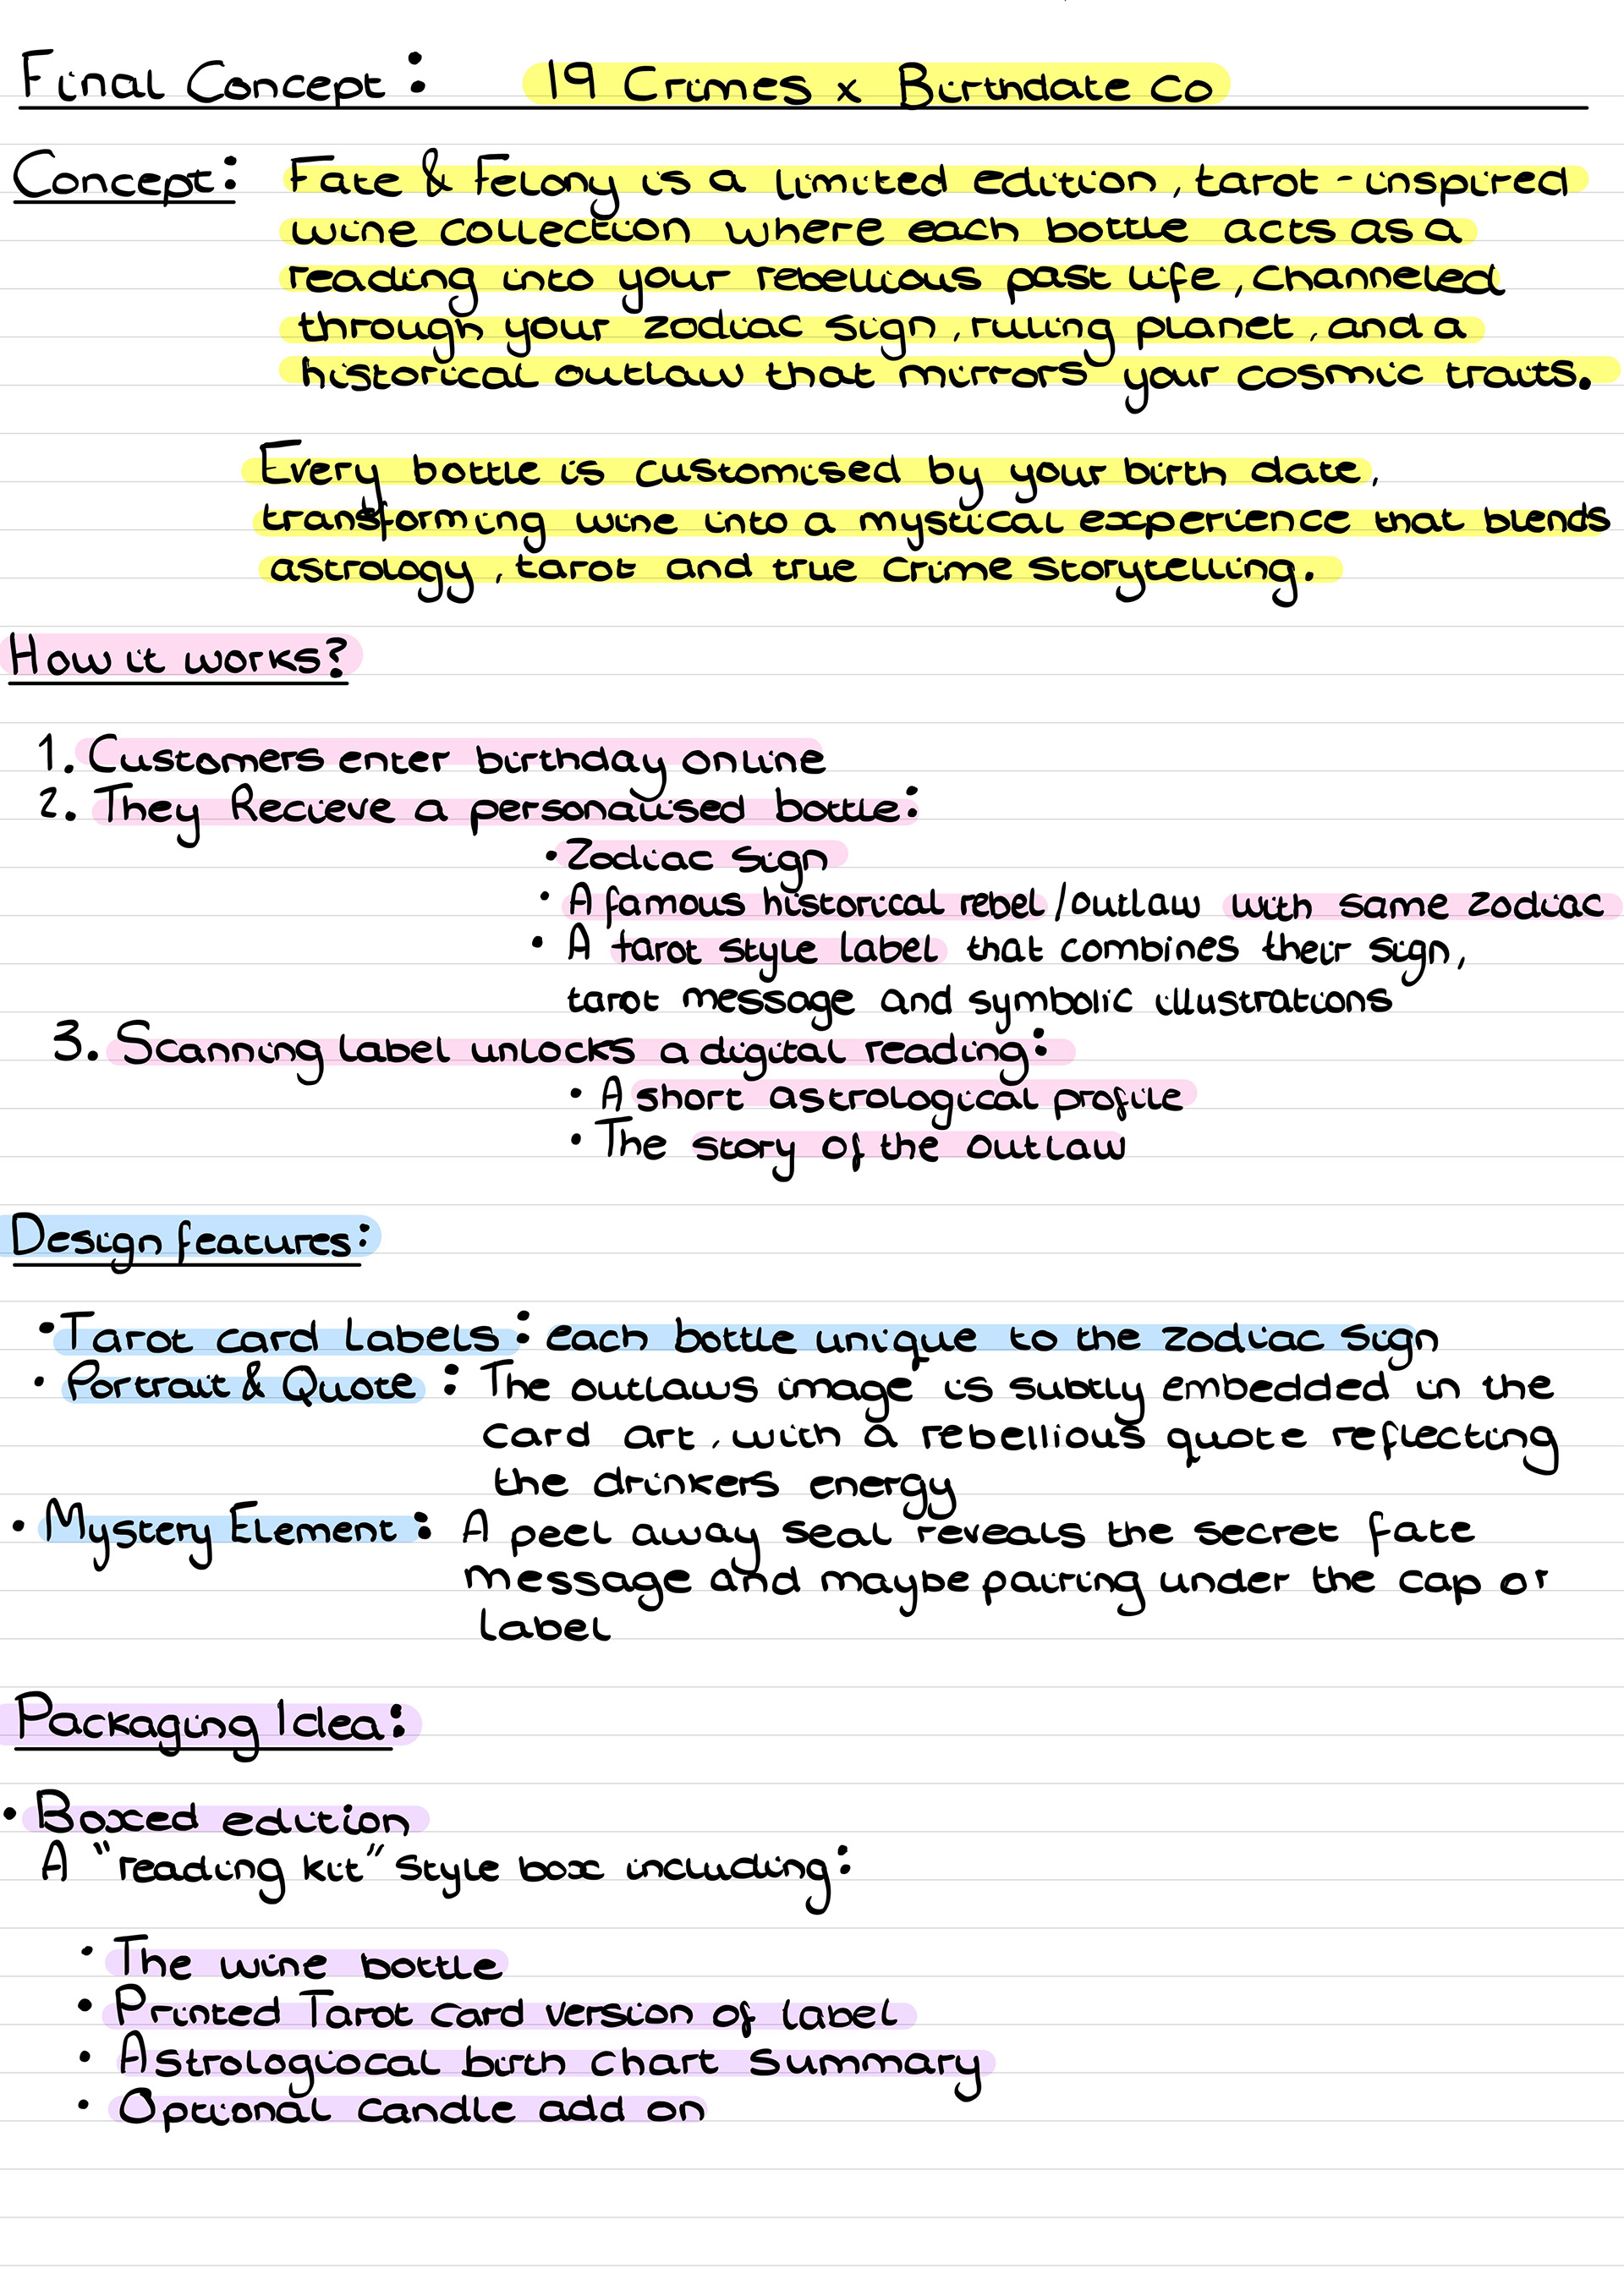 Final Concept: 19 Crimes x Birthdate Co
Concept: Fate & Felony is a limited edition, tarot-inspired
wine collection where each bottle acts as a
reading into your rebellious past life, channeled
through your zodiac sign, ruling planet, and a
historical outlaw that mirrors your cosmic traits.
Every bottle is customised by your birth date,
transforming wine into a mystical experience that blends
astrology, tarot and true crime storytelling.
How it works?
1. Customers enter birthday online
2. They Recieve a personalised bottle:
• Zodiac Sign
• A famous historical rebel/outlaw with same zodiac
• A tarot style label that combines their sign,
tarot message and symbolic illustrations
3. Scanning label unlocks a digital reading:
• A short astrological profile
• The story of the outlaw
Design features:
• Tarot card labels: each bottle unique to the zodiac sign
• Portrait & Quote: The outlaws image is subtly embedded in the
card art, with a rebellious quote reflecting
the drinkers energy
• Mystery Element: A peel away seal reveals the secret fate
message and maybe pairing under the cap or
label
Packaging Idea:
• Boxed edition
A "reading kit" style box including:
• The wine bottle
• Printed Tarot card version of label
• Astrologiocal birth chart summary
• Optional candle add on